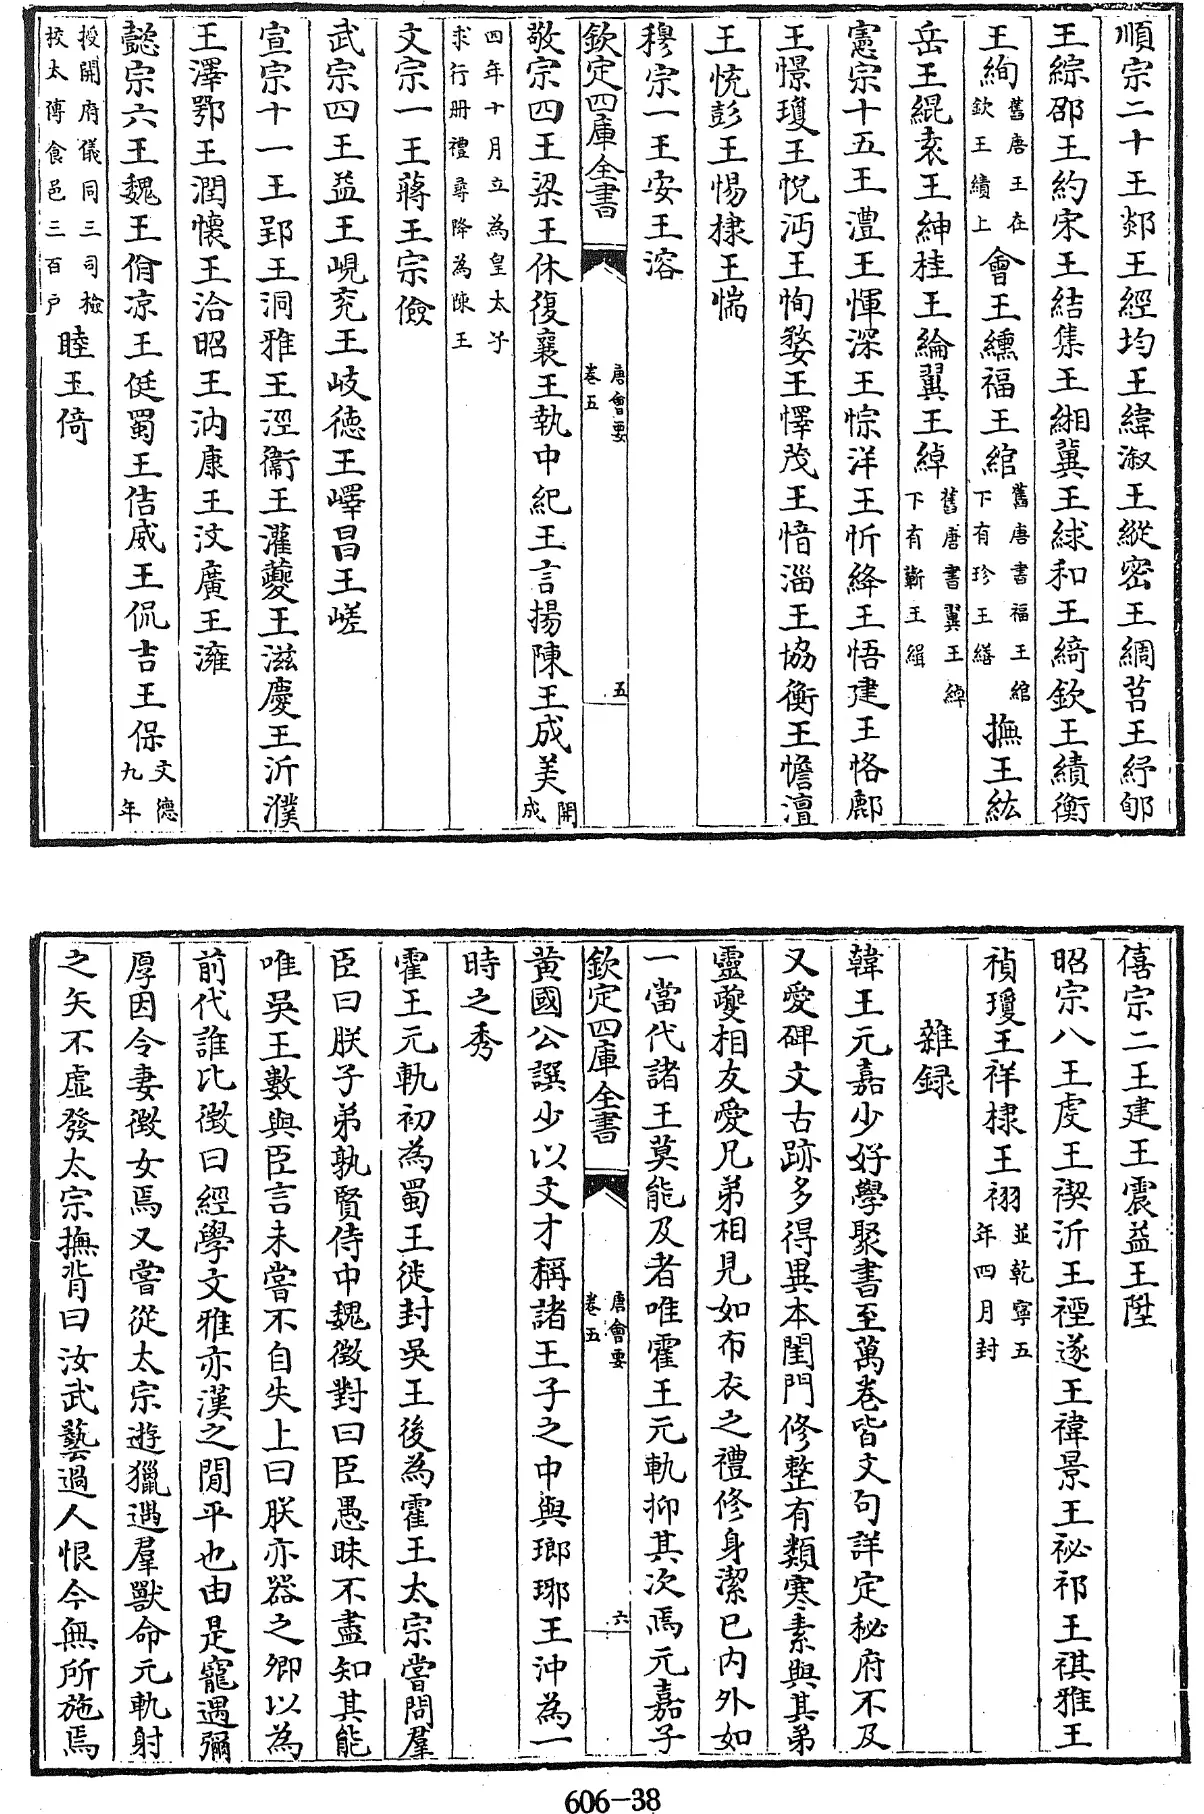 順宗二十王郯王經均王緯溆王縱密王綢莒王紓郇
王綜邵王約宋王結集王緗冀王絿和王綺欽王績衡
王絢舊唐王在欽王績上會王纁福王綰舊唐書福王綰下有珍王繕撫王紘
岳王緄袁王紳桂王綸翼王綽舊唐書翼王綽下有蘄王緝
憲宗十五王澧王惲深王悰洋王忻絳王悟建王恪鄜
王憬瓊王悅沔王恂婺王懌茂王愔淄王協衡王憺澶
王㤝彭王惕棣王惴
穆宗一王安王溶
欽定四庫全書
唐會要
卷五
五
敬宗四王梁王休復襄王執中紀王言揚陳王成美開成
四年十月立為皇太子
求行册禮尋降為陳王
文宗一王蔣王宗儉
武宗四王益王峴兖王岐德王嶧昌王嵯
宣宗十一王郢王洞雅王涇衞王灌夔王滋慶王沂濮
王澤鄂王潤懷王洽昭王汭康王汶廣王澭
懿宗六王魏王佾凉王侹蜀王佶威王侃吉王保文德九年
授開府儀同三司檢
校太傅食邑三百户睦王倚
僖宗二王建王震益王陞
昭宗八王䖍王禊沂王禋遂王禕景王祕祁王祺雅王
禎瓊王祥棣王祤並乾寧五年四月封
雜録
韓王元嘉少好學聚書至萬卷皆文句詳定秘府不及
又愛碑文古跡多得異本閨門修整有類寒素與其弟
靈夔相友愛兄弟相見如布衣之禮修身潔已内外如
一當代諸王莫能及者唯霍王元軌抑其次焉元嘉子
欽定四庫全書
唐會要
卷五
六
黄國公譔少以文才稱諸王子之中與瑯琊王沖為一
時之秀
霍王元軌初為蜀王徙封吳王後為霍王太宗嘗問羣
臣曰朕子弟孰賢侍中魏徵對曰臣愚昧不盡知其能
唯吳王數與臣言未嘗不自失上曰朕亦器之卿以為
前代誰比徵曰經學文雅亦漢之閒平也由是寵遇彌
厚因令妻徵女焉又嘗從太宗遊獵遇羣獸命元軌射
之矢不虛發太宗撫背曰汝武藝過人恨今無所施焉
606-38